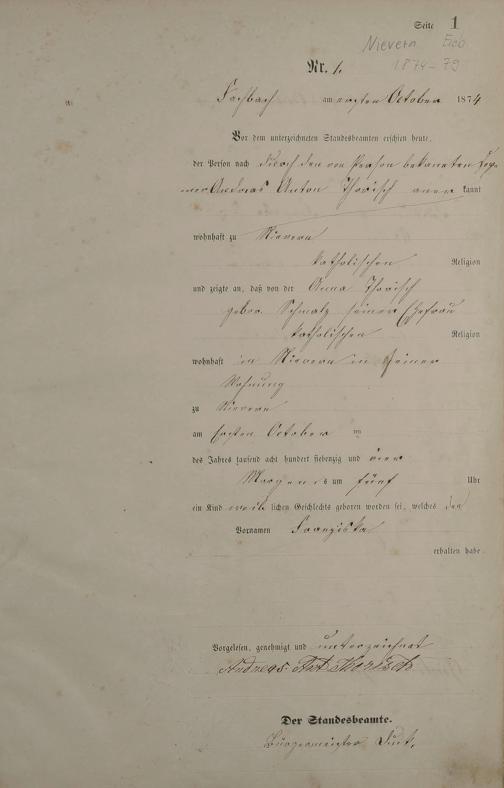 Seite 1
Nievern Geb
1874-79
Nr. 1.
Fachbach am ersten October 1874
Vor dem unterzeichneten Standesbeamten erschien heute,
der Person nach durch den von Person bekannten
Andreas Anton Thorisch aner kannt
wohnhaft zu Nievern
katholischen Religion
und zeigte an, daß von der Anna Thorisch
gebor. Schmalz seiner Ehefrau
katholischen Religion
wohnhaft in Nievern in seiner
Wohnung
zu Nievern
am ersten October
des Jahres tausend acht hundert siebenzig und vier
Morgens um fünf Uhr
ein Kind weib lichen Geschlechts geboren worden sei, welches den
Vornamen Franziska
erhalten habe.
Vorgelesen, genehmigt und unterzeichnet
Andreas Ant Thorisch
Der Standesbeamte.
Bürgermeister